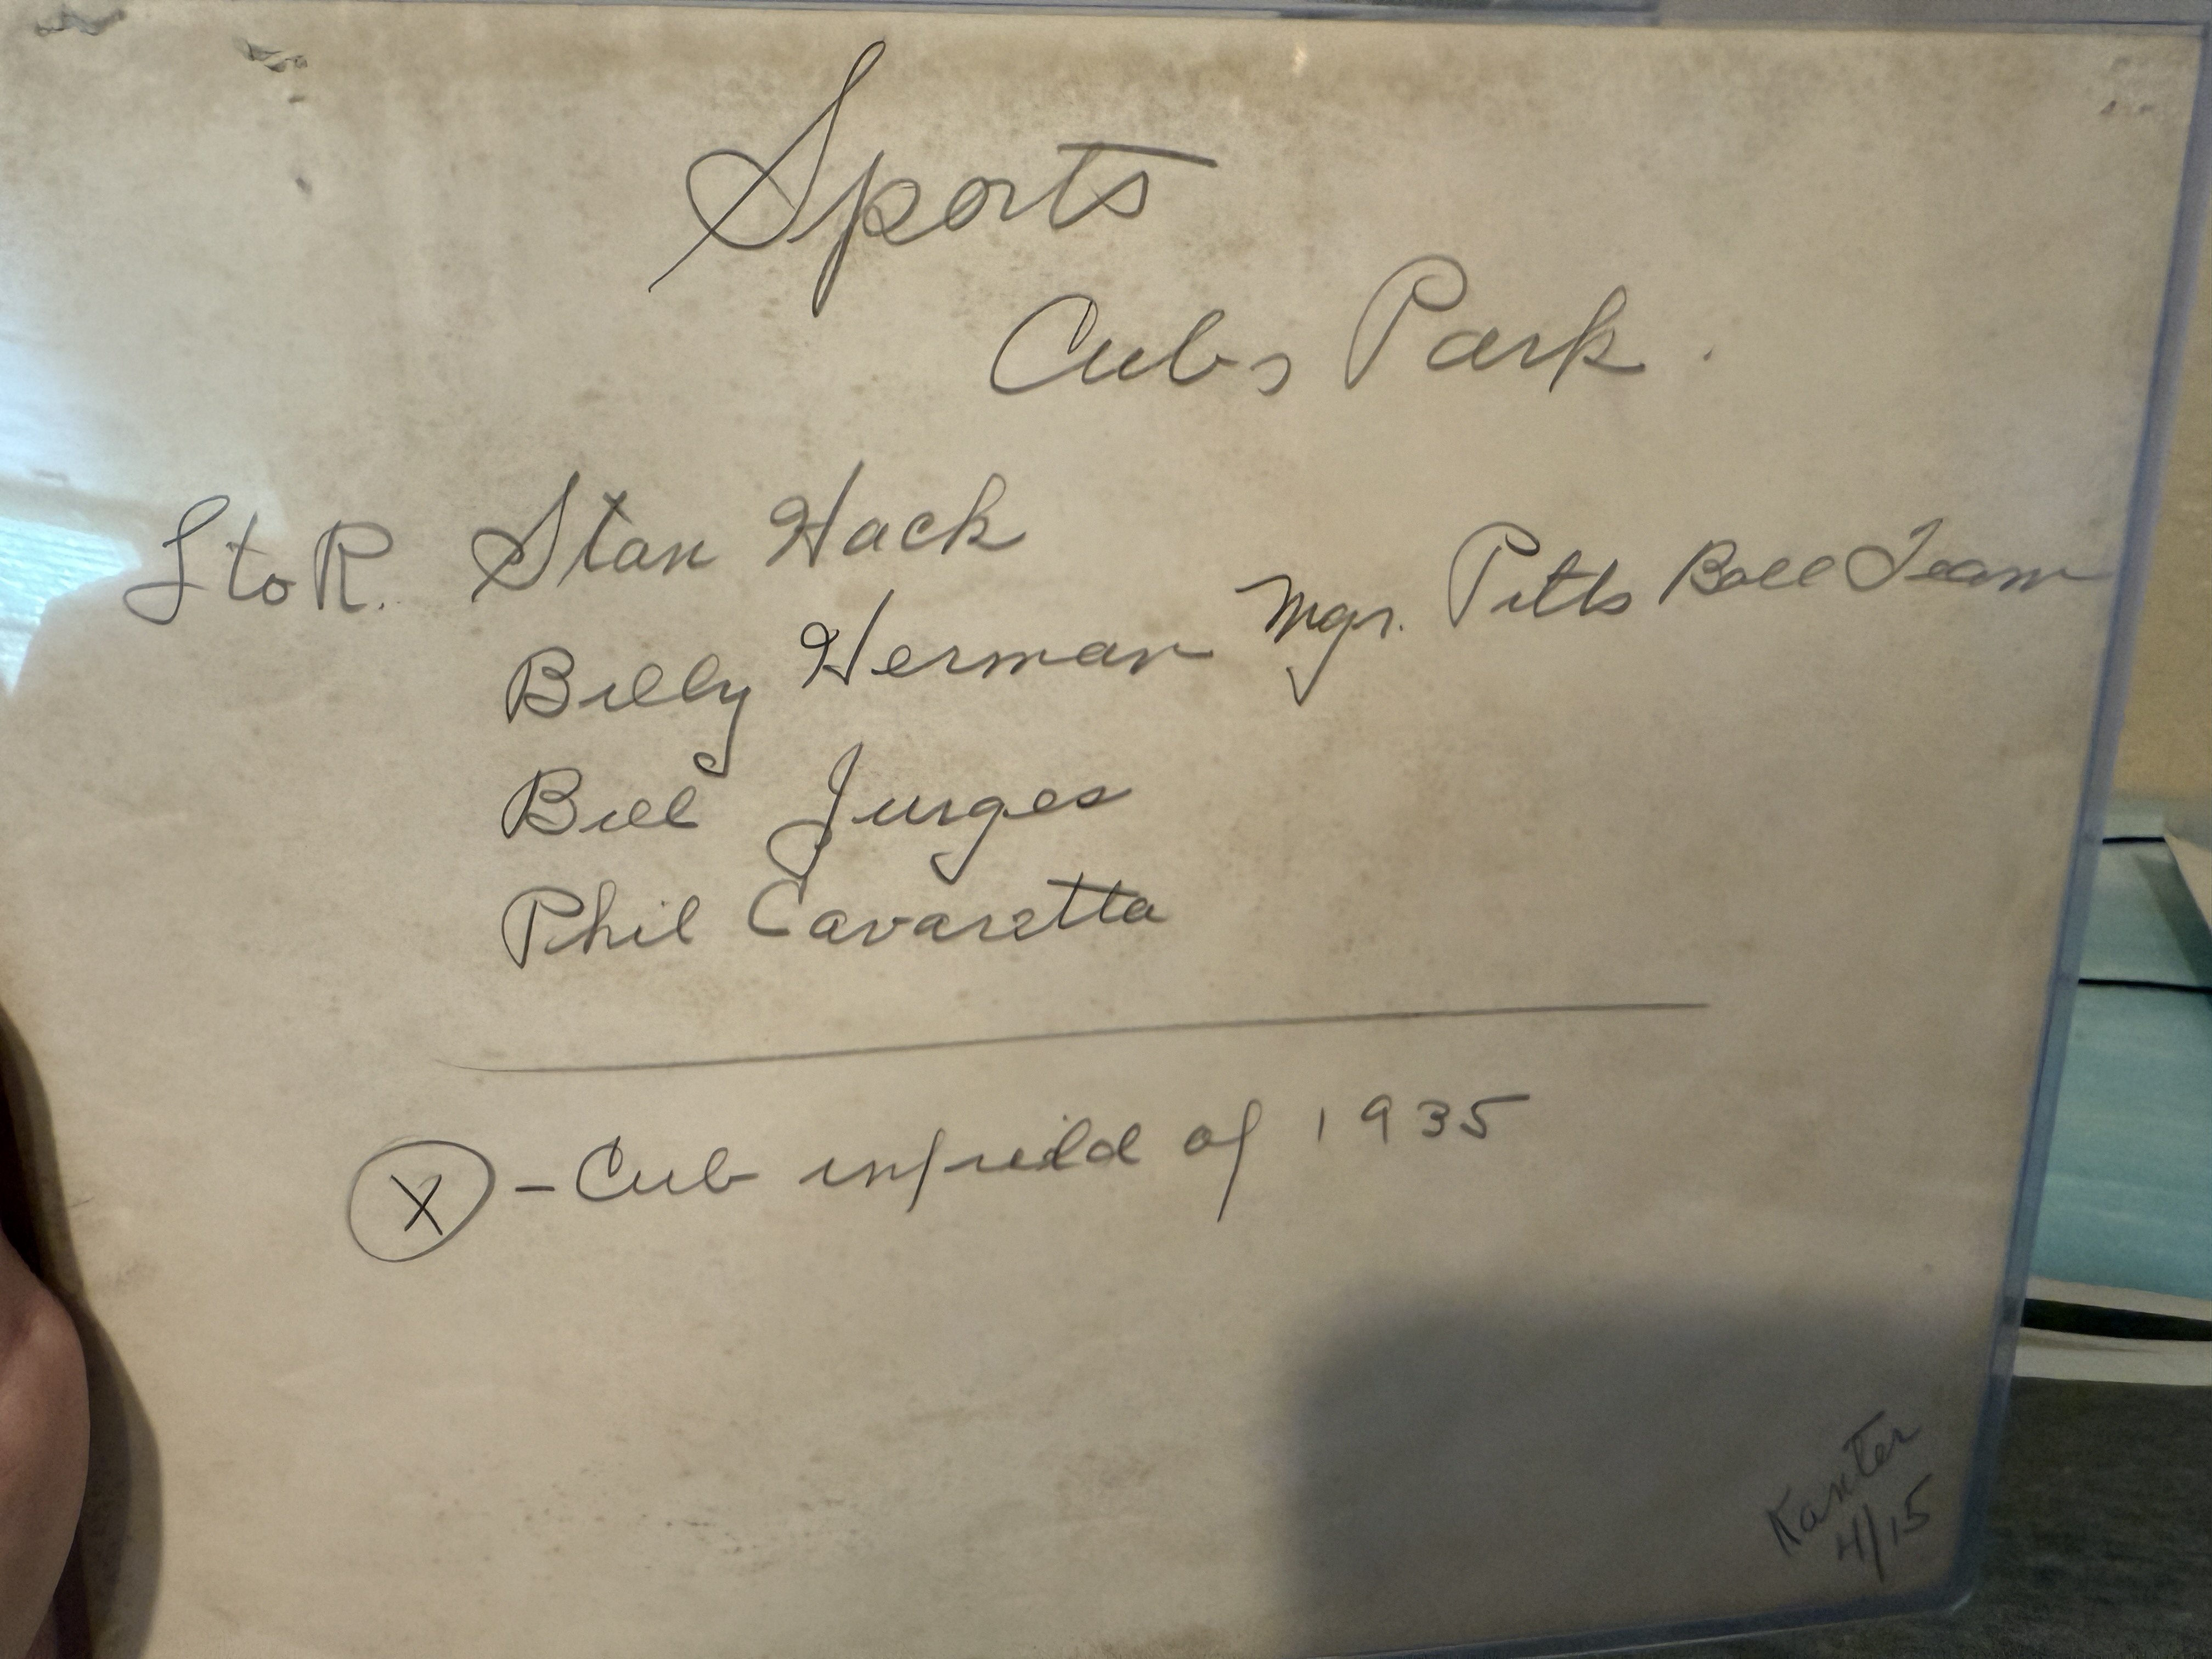 Sports
Cubs Park.
L to R. Stan Hack
Billy Herman Mgr. Pitts Ball Team
Bill Jurges
Phil Cavaretta
X - Cub infield of 1935
Kanter
4/15